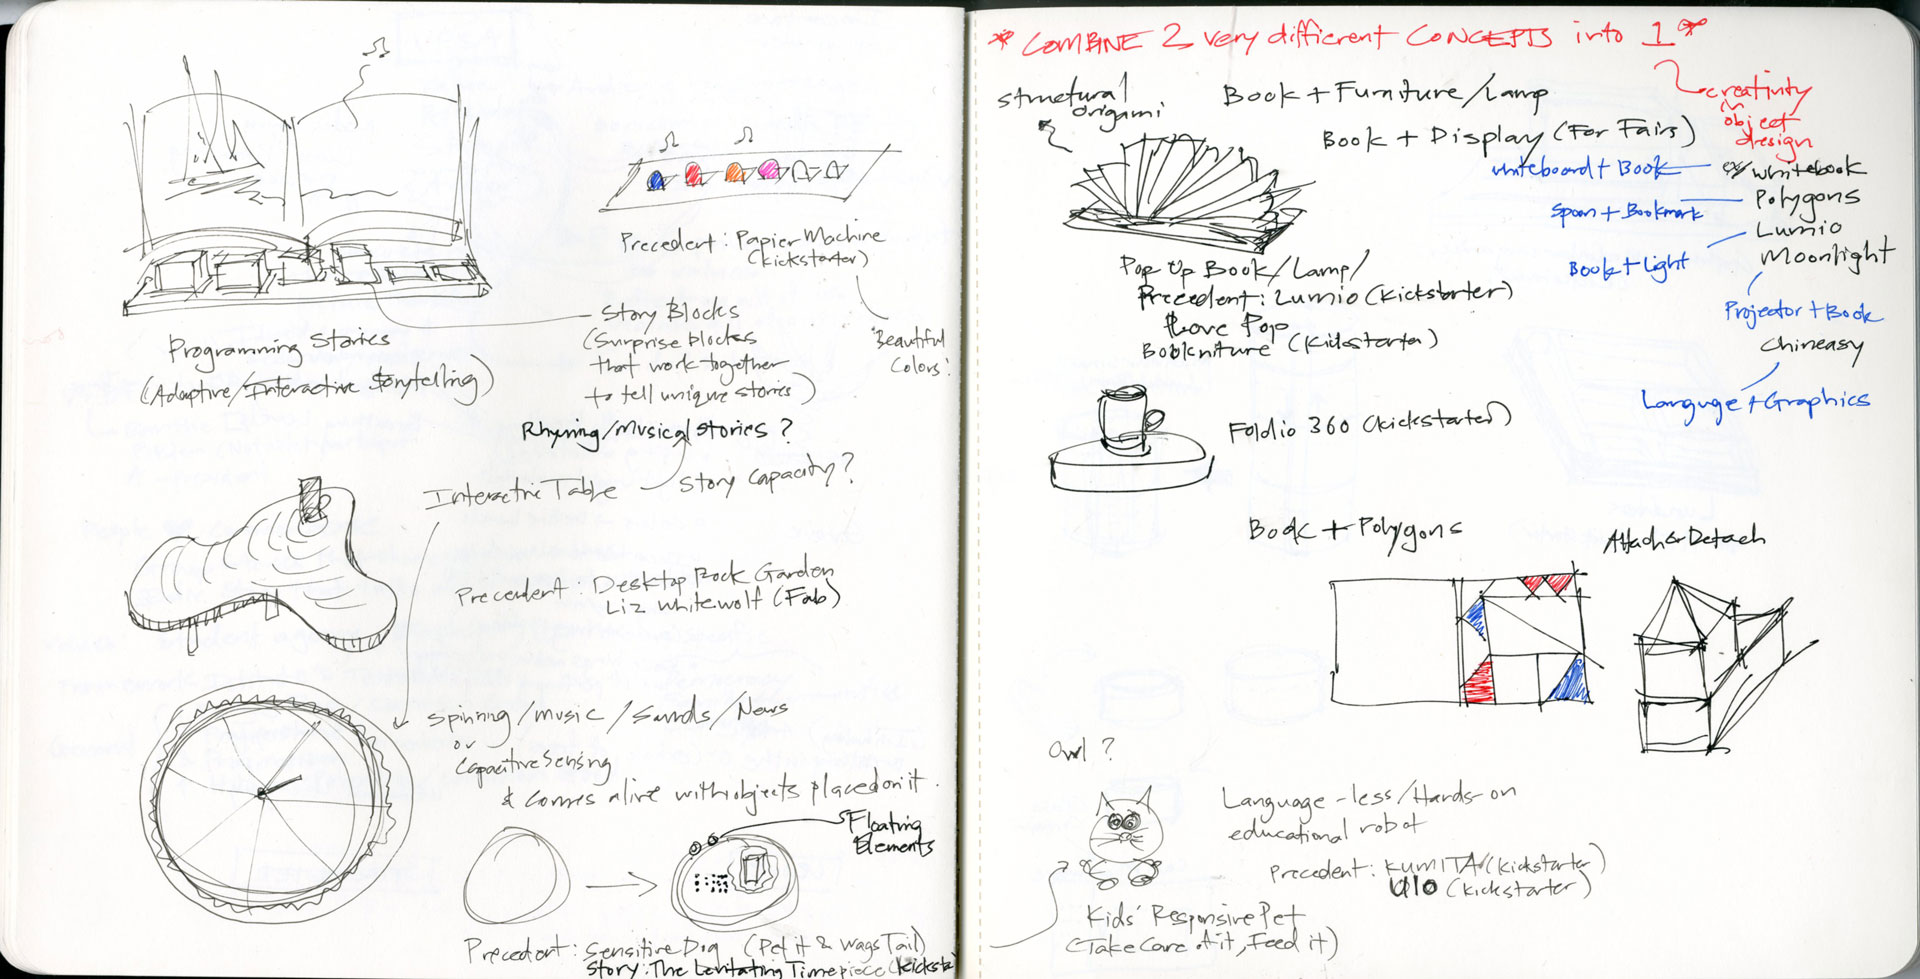 Programming Stories
(Adaptive/Interactive Storytelling)
Precedent: Papier Machine
(kickstarter)
"Beautiful
Colors!
Story Blocks
(Surprise blocks
that work together
to tell unique stories)
Rhyming/Musical stories?
Interactive Table
Story Capacity?
Precedent: Desktop Rock Garden
Liz Whitewolf (Fab)
Spinning/Music/Sounds/News
or
Capacitive Sensing
& comes alive with objects placed on it.
Floating
Elements
Precedent: Sensitive Dog (Pet it & Wags Tail)
Story: The Levitating Timepiece (kicksta
* COMBINE 2 very diffierent CONCEPTS into 1 *
creativity
in
object
design
structural
origami
Book + Furniture/Lamp
Book + Display (For Fairs)
whiteboard + Book
ex/ whitebook
Spoon + Bookmark
Polygons
Book + Light
Lumio
Moonlight
Projector + Book
Chineasy
Languge + Graphics
Pop Up Book/Lamp/
Precedent: Lumio (Kickstarter)
Love Pop
Bookniture (Kickstarter)
Foldio 360 (kickstarter)
Book + Polygons
Attach & Detach
Owl?
Language-less/Hands-on
educational robot
Precedent: KUMIITA (kickstarter)
(kickstarter)
Kids' Responsive Pet
(Take Care of it, Feed it)